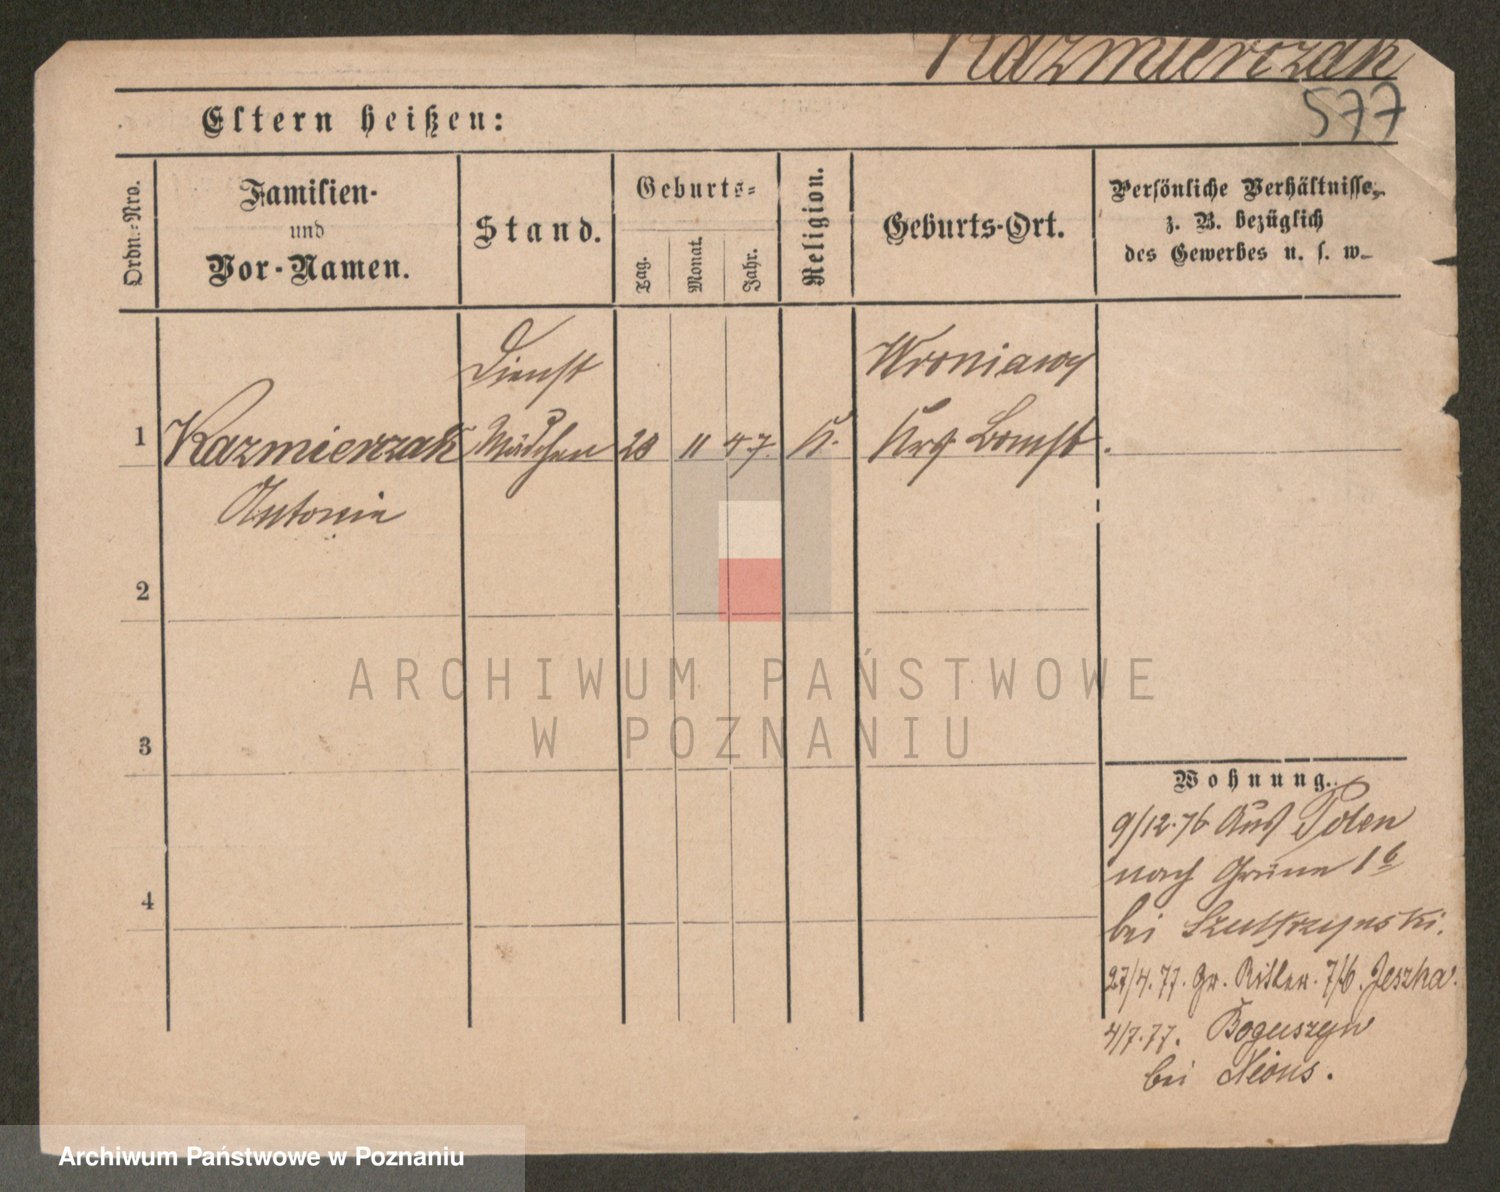 Kazmierczak
577
Eltern heißen:
Ordn.-Nro.
Familien-
und
Vor-Namen.
Stand.
Geburts-
Tag.
Monat.
Jahr.
Religion.
Geburts-Ort.
Persönliche Verhältnisse,
z. B. bezüglich
des Gewerbes u. s. w.
1
Kazmierczak
Antonie
Dienst
Mädchen
11
47.
K.
Wroniawy
Krs Bomst.
2
3
4
Wohnung.
9/12.76 Aus Polen
nach Grüne 1b
bei
27/4.77. Gr. Ritter. 7/6. Jeszka.
4/7.77. Boguszyn
bei
ARCHIWUM PAŃSTWOWE
W POZNANIU
Archiwum Państwowe w Poznaniu